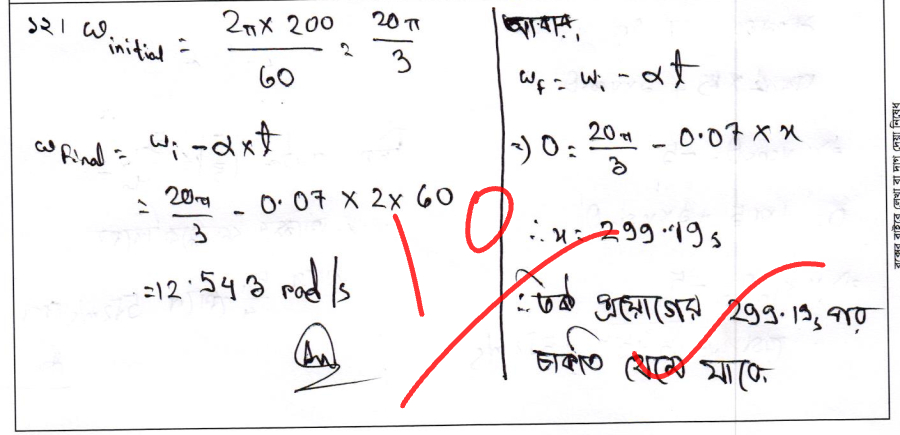 ১২। ω initial = 2π × 200 / 60 = 20π / 3
ω final = ωi - α × t
= 20π / 3 - 0.07 × 2 × 60
= 12.543 rad/s
Ans
আবার,
ωf = ωi - αt
⇒ 0 = 20π / 3 - 0.07 × x
∴ x = 299.19 s
∴ টর্ক প্রয়োগের 299.19 s পর
চাকাটি থেমে যাবে
10
বক্সের বাইরে লেখা বা দাগ দেয়া নিষেধ